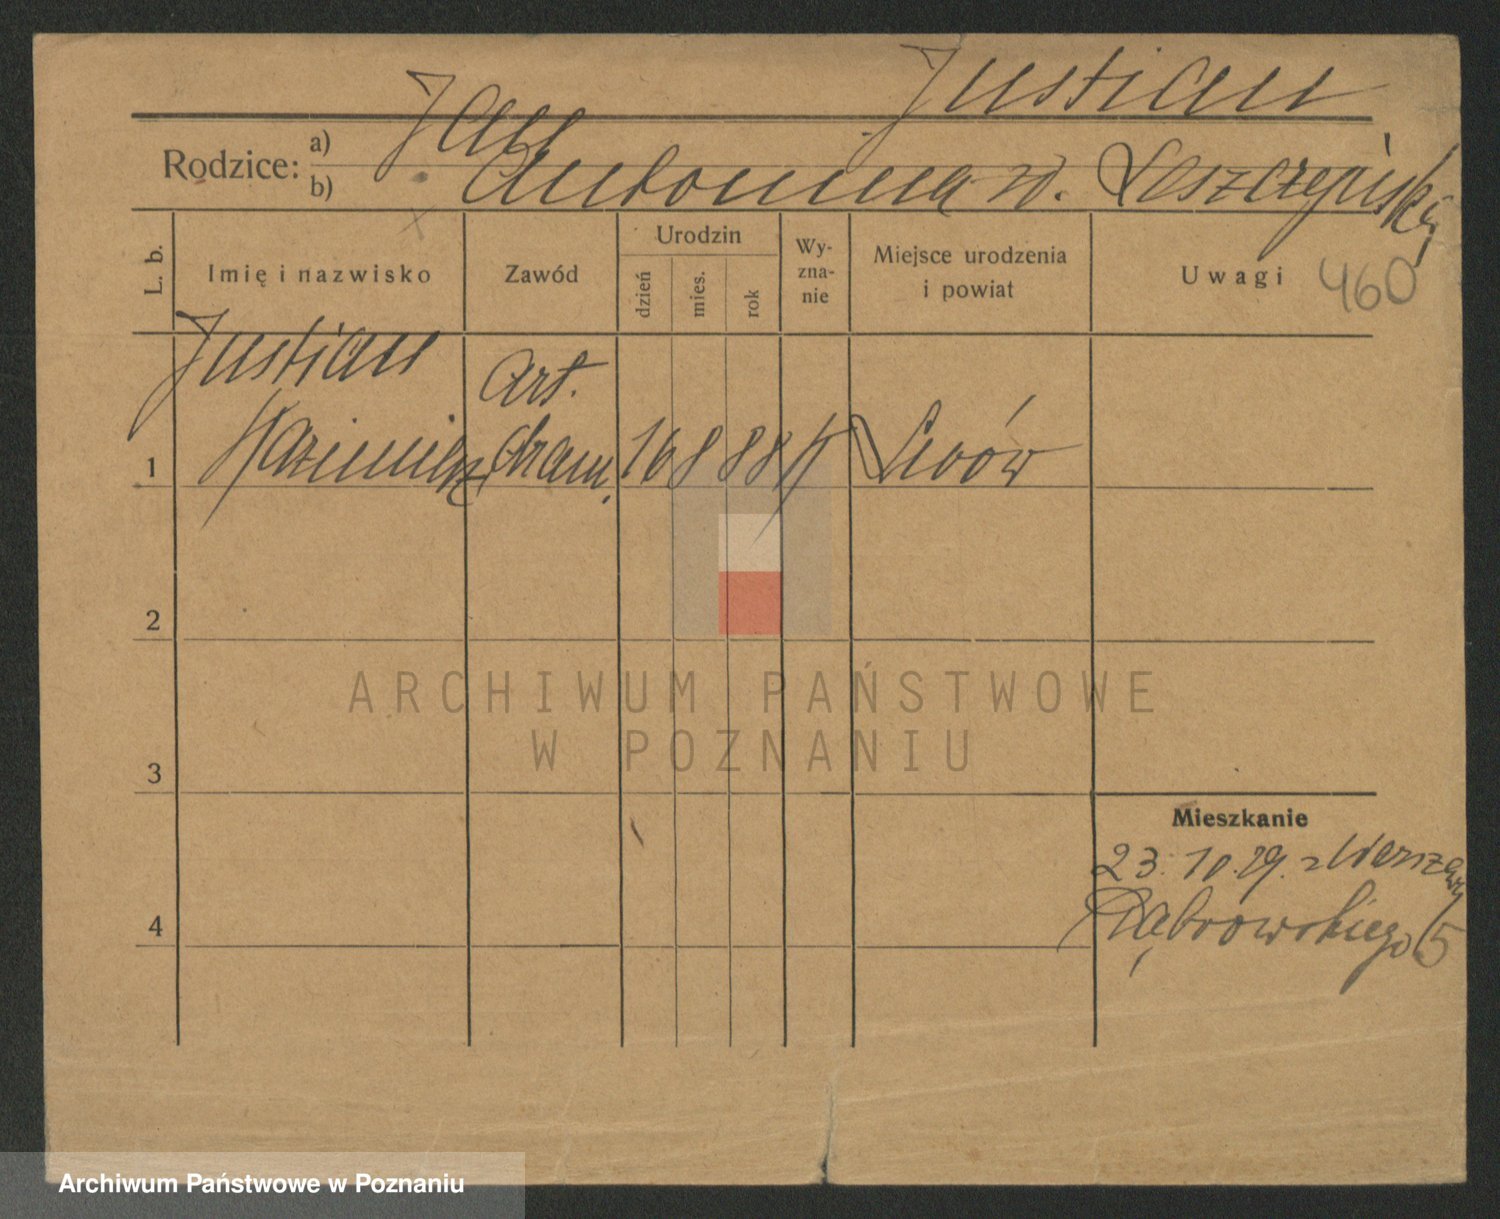 Justian
Rodzice: a) Jan
b) Antonina z d. Leszczyńska
L. b. Imię i nazwisko Zawód Urodzin dzień mies. rok Wy-zna-nie Miejsce urodzenia i powiat Uwagi 460
Justian art.
1 Kazimierz dram. 16 8 88 Lwów
2
ARCHIWUM PAŃSTWOWE
W POZNANIU
3
Mieszkanie
23.10.29. z Warszawy
4 Dąbrowskiego 5
Archiwum Państwowe w Poznaniu